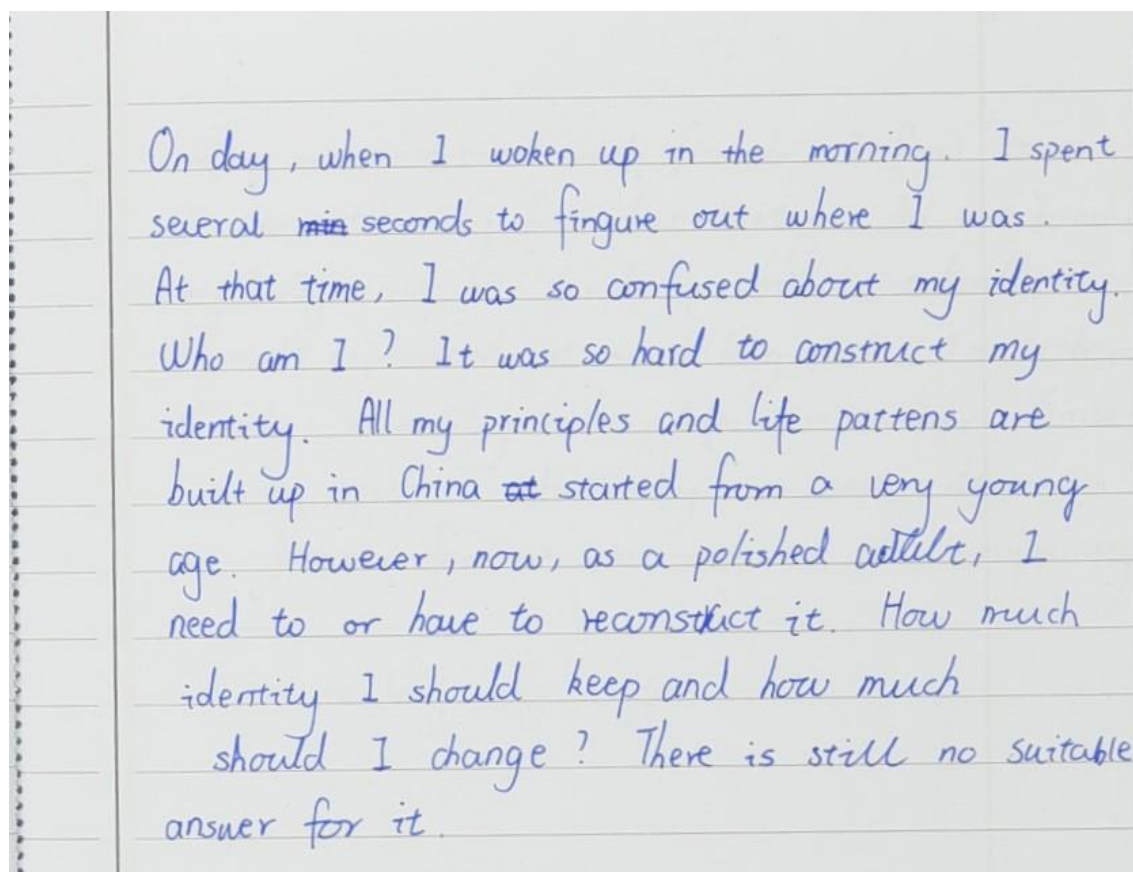 On day, when I woken up in the morning. I spent
several min seconds to fingure out where I was.
At that time, I was so confused about my identity.
Who am I? It was so hard to construct my
identity. All my principles and life pattens are
built up in China at started from a very young
age. However, now, as a polished adult, I
need to or have to reconstruct it. How much
identity I should keep and how much
should I change? There is still no suitable
answer for it.